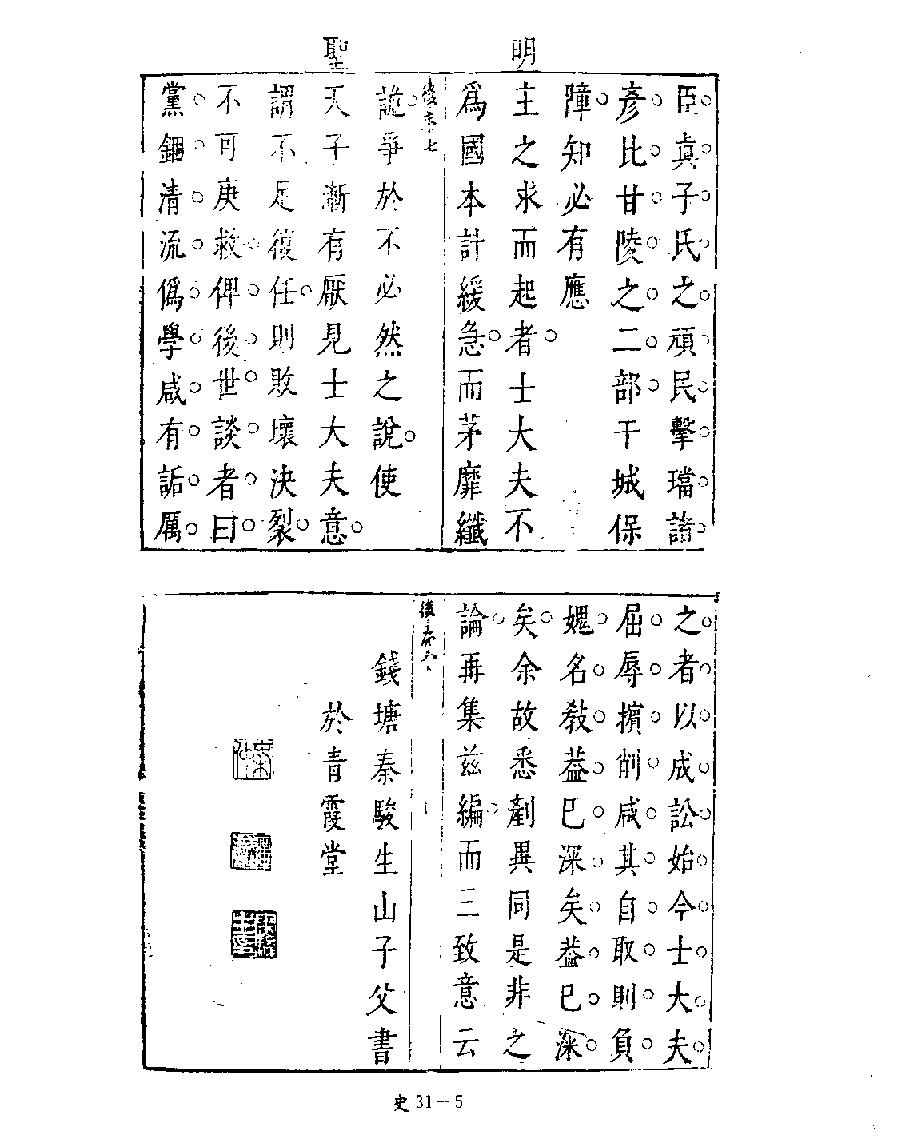 臣真子氏之頑民擊璫諸
彥比甘陵之二部干城保
障知必有應
明主之求而起者士大夫不
為國本計緩急而茅靡纖
詭爭於不必然之說使
聖天子漸有厭見士大夫意
謂不足復任則敗壞決裂
不可庚救俾後世談者曰
黨錮清流僞學咸有詬厲
之者以成訟始今士大夫
屈辱擯削咸其自取則負
媿名敎葢已深矣葢已深
矣余故悉劉異同是非之
論再集茲編而三致意云
錢塘秦駿生山子父書
於青霞堂
史 31—5